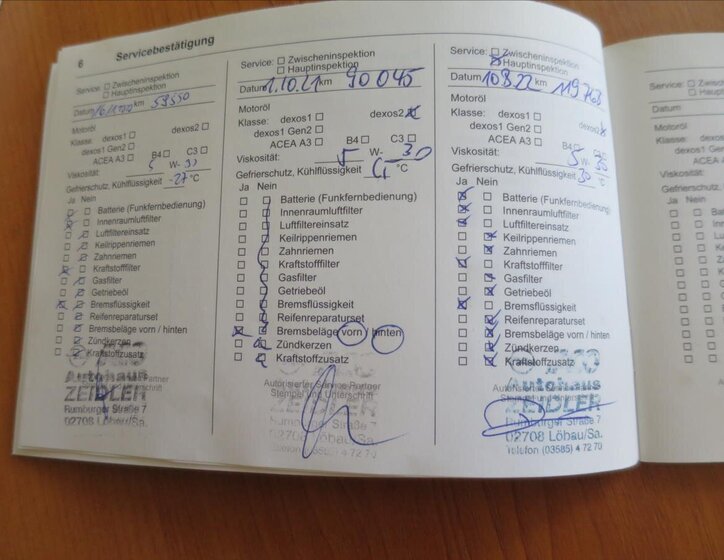 6 Servicebestätigung
Service: ☐ Zwischeninspektion
☐ Hauptinspektion
Datum km 59550
Motoröl
Klasse: dexos1 ☐ dexos2 ☐
dexos1 Gen2 ☐
ACEA A3 ☐ B4 ☐ C3 ☐
Viskosität: 5 W- 30
Gefrierschutz, Kühlflüssigkeit -27 °C
Ja Nein
Batterie (Funkfernbedienung)
Innenraumluftfilter
Luftfiltereinsatz
Keilrippenriemen
Zahnriemen
Kraftstofffilter
Gasfilter
Getriebeöl
Bremsflüssigkeit
Reifenreparaturset
Bremsbeläge vorn / hinten
Zündkerzen
Kraftstoffzusatz
Autohaus
ZEIDLER
Rumburger Straße 7
02708 Löbau/Sa.
Service: ☐ Zwischeninspektion
☐ Hauptinspektion
Datum 1.10.21 km 90045
Motoröl
Klasse: dexos1 ☐ dexos2 ☒
dexos1 Gen2 ☐
ACEA A3 ☐ B4 ☐ C3 ☐
Viskosität: 5 W- 30
Gefrierschutz, Kühlflüssigkeit °C
Ja Nein
Batterie (Funkfernbedienung)
Innenraumluftfilter
Luftfiltereinsatz
Keilrippenriemen
Zahnriemen
Kraftstofffilter
Gasfilter
Getriebeöl
Bremsflüssigkeit
Reifenreparaturset
Bremsbeläge vorn / hinten
Zündkerzen
Kraftstoffzusatz
Autorisierter Service-Partner
Stempel und Unterschrift
ZEIDLER
Rumburger Straße 7
02708 Löbau/Sa.
Telefon (03585) 4 72 70
Service: ☐ Zwischeninspektion
☒ Hauptinspektion
Datum 10.8.22 km 119768
Motoröl
Klasse: dexos1 ☐ dexos2 ☒
dexos1 Gen2 ☐
ACEA A3 ☐ B4 ☐ C3 ☐
Viskosität: 5 W- 30
Gefrierschutz, Kühlflüssigkeit 30 °C
Ja Nein
Batterie (Funkfernbedienung)
Innenraumluftfilter
Luftfiltereinsatz
Keilrippenriemen
Zahnriemen
Kraftstofffilter
Gasfilter
Getriebeöl
Bremsflüssigkeit
Reifenreparaturset
Bremsbeläge vorn / hinten
Zündkerzen
Kraftstoffzusatz
Autohaus
ZEIDLER
Rumburger Straße 7
02708 Löbau/Sa.
Telefon (03585) 4 72 70
Service: ☐
☐
Datum
Motoröl
Klasse: dexos1
dexos1 Gen2
ACEA A3
Viskosität:
Gefrierschutz, Kühl
Ja Nein